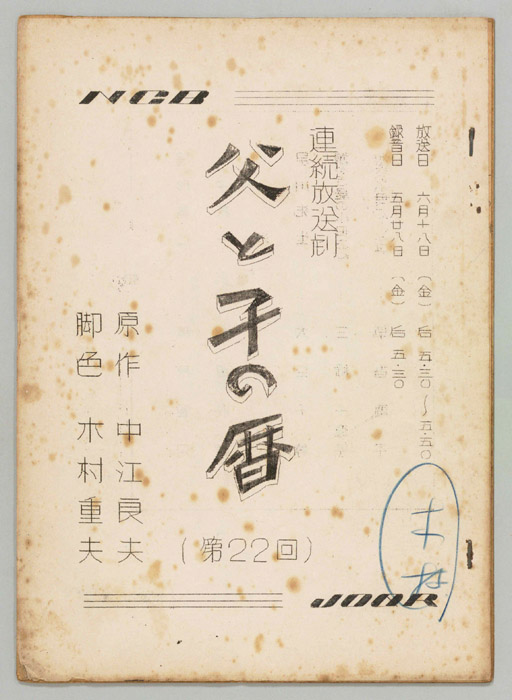 NCB
放送日 六月十八日（金）后 五.三〇～五.五〇
録音日 五月廿八日（金）后 五.三〇
連続放送劇
父と子の暦
（第22回）
原作 中江良夫
脚色 木村重夫
JOOR
木村